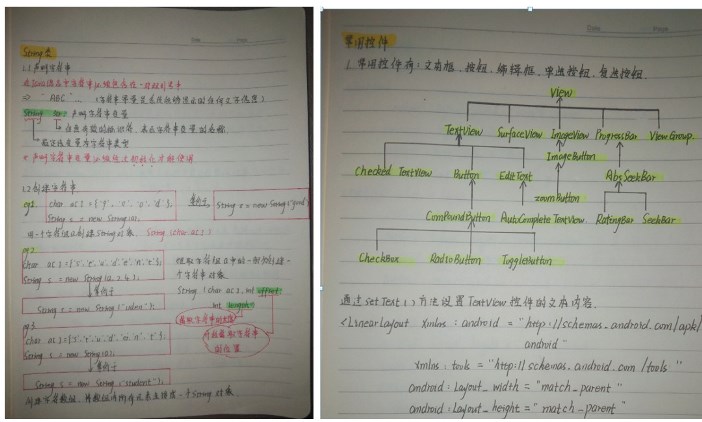 String类
1.1 声明字符串
在Java语言中字符串必须包含在一对双引号中
"ABC"
String str; 声明字符串变量
指定该变量为字符串类型
* 声明字符串变量必须经过初始化才能使用
1.2 创建字符串
eg1. char a[] = {'g','o','o','d'};
String s = new String(a);
等价于
String s = new String("good");
用一个字符数组创建String对象 String(char a[])
eg2.
char a[] = {'s','t','u','d','e','n','t'};
String s = new String(a,2,4);
等价于
提取字符数组中的一部分创建一
个字符串对象
String(char a[], int offset,
int length)
截取字符串的长度
开始截取字符串
的位置
eg3.
char a[] = {'s','t','u','d','e','n','t'};
String s = new String(a);
等价于
String s = new String("student");
常用控件
1. 常用控件有: 文本框、按钮、编辑框、单选按钮、复选按钮.
View
TextView SurfaceView ImageView ProgressBar ViewGroup.
ImageButton
Checked TextView Button EditText AbsSeekBar
zoomButton
ComPoundButton AutoComplete TextView RatingBar SeekBar
CheckBox RadioButton ToggleButton
通过setText()方法设置TextView控件的文本内容.
<LinearLayout xmlns:android = "http://schemas.android.com/apk/
android"
xmlns:tools = "http://schemas.android.com/tools"
android:layout_width = "match_parent"
android:layout_height = "match_parent"